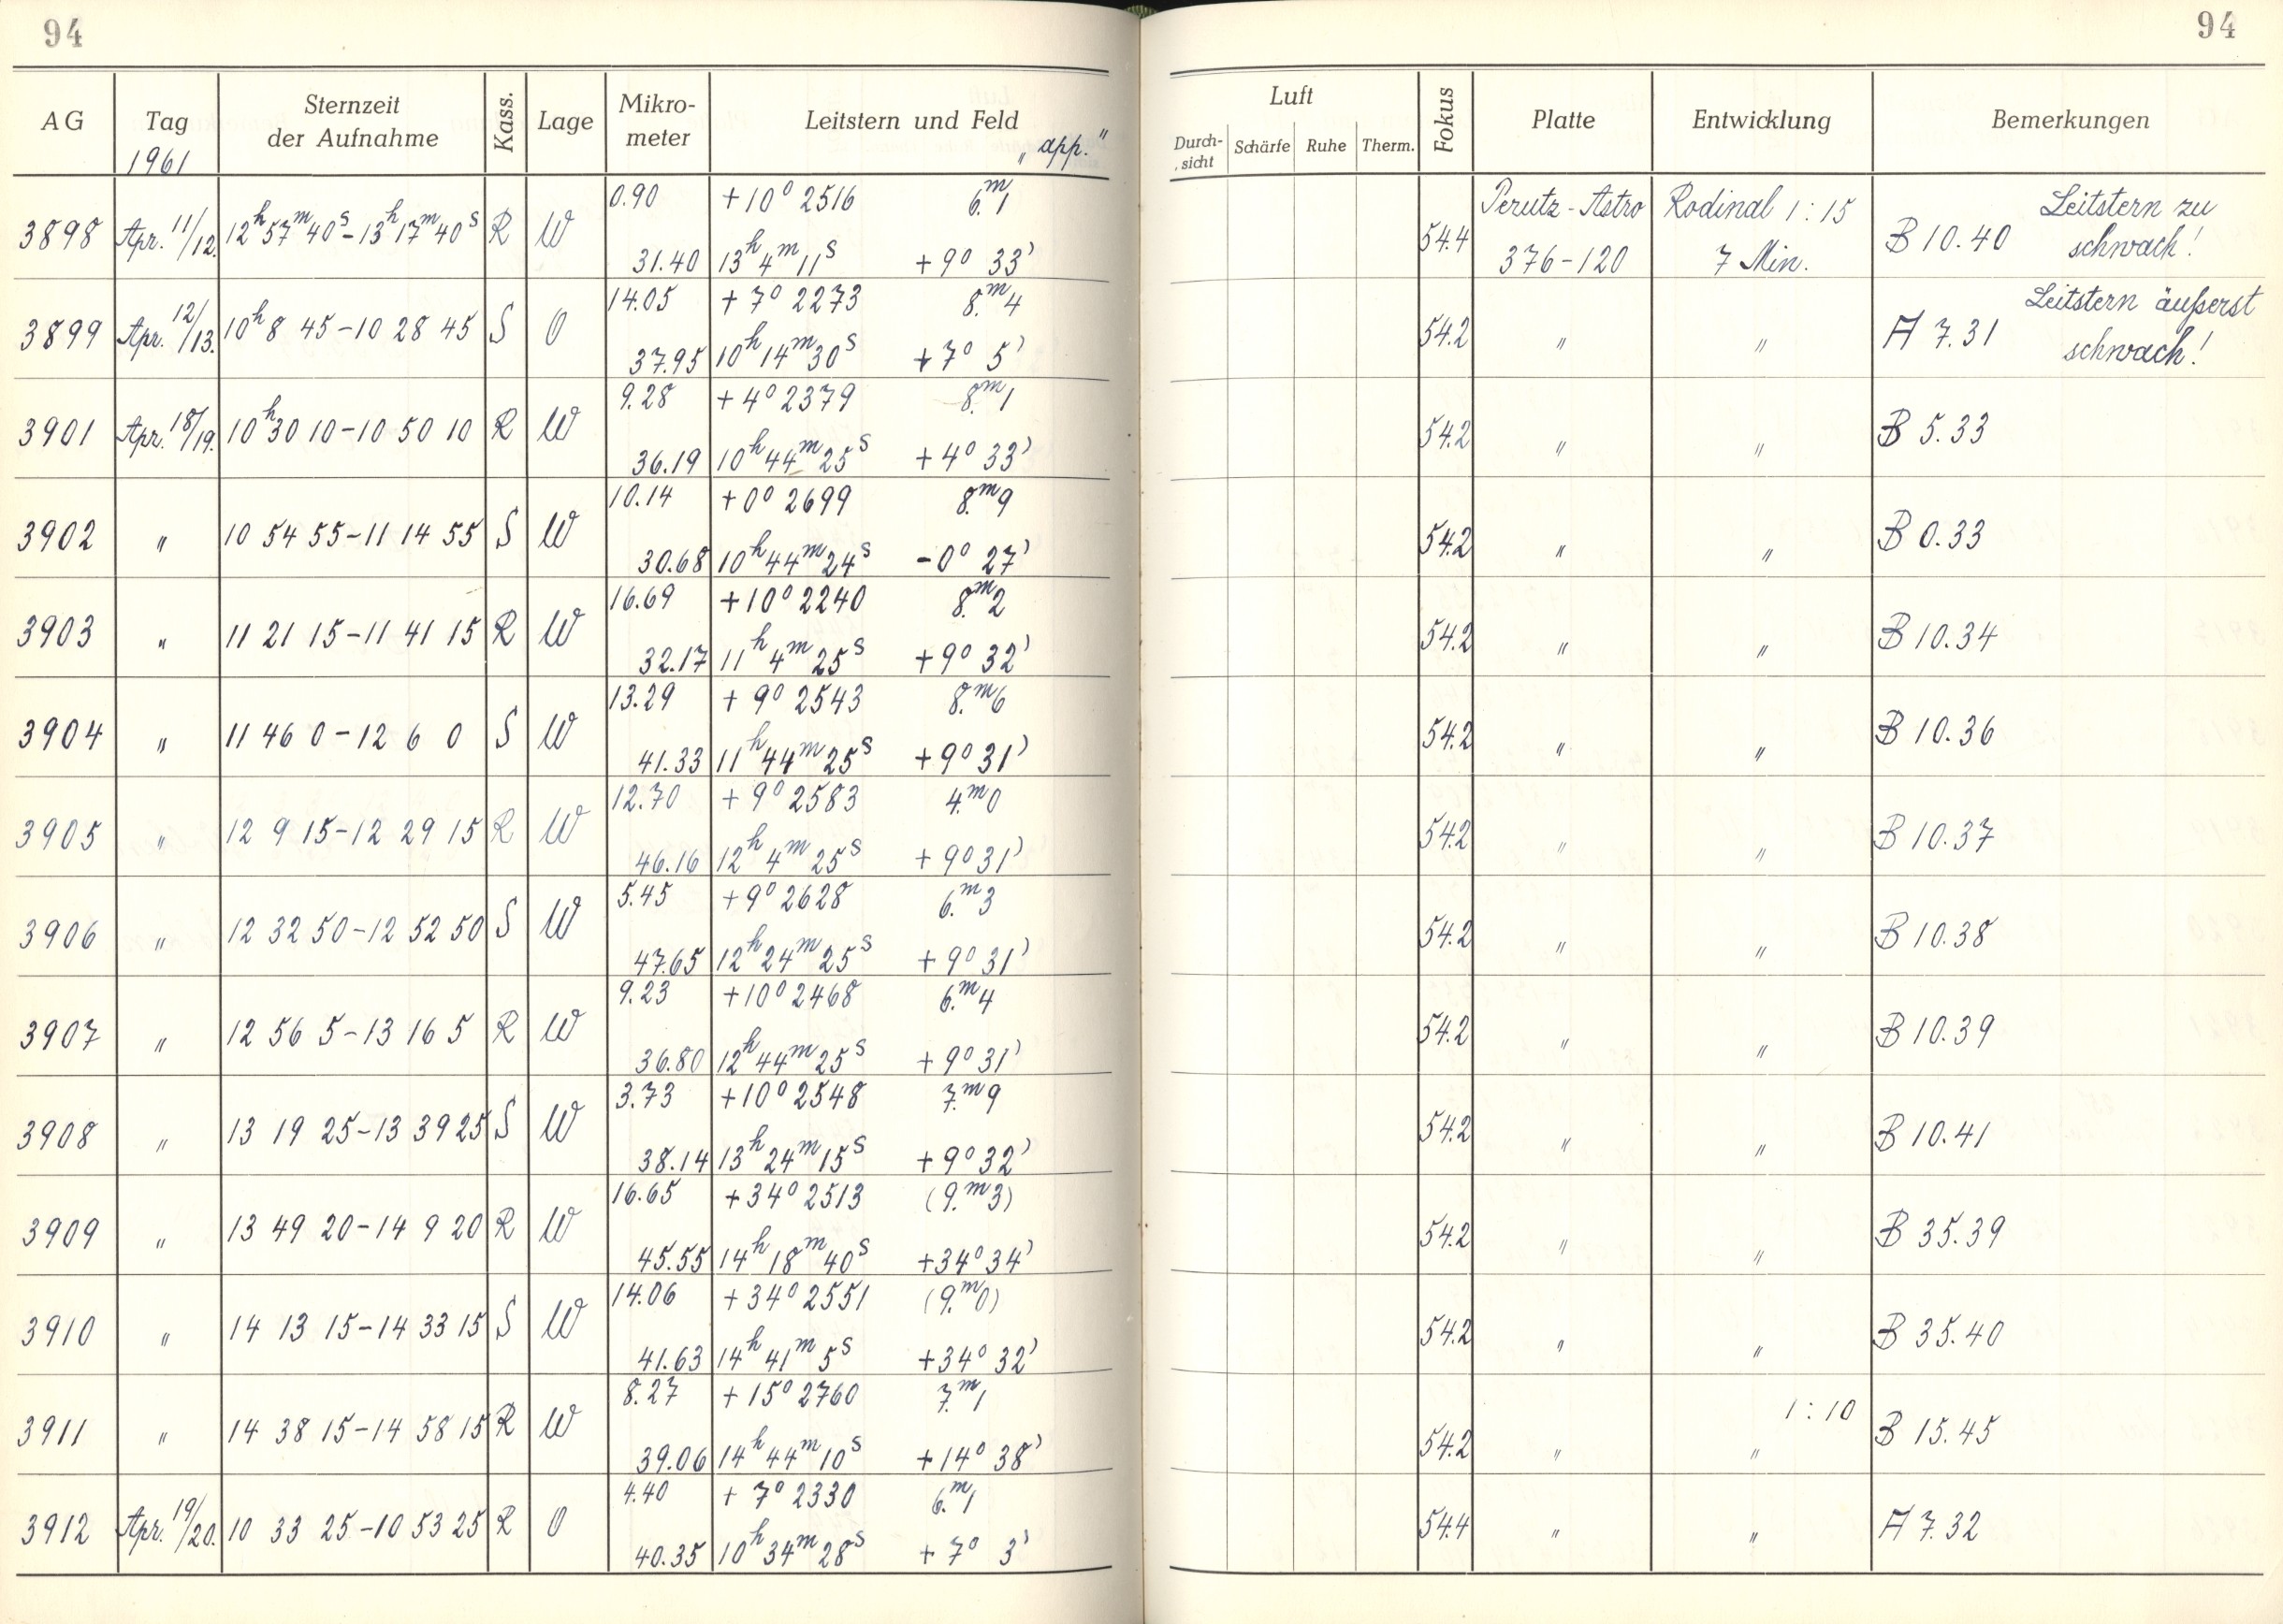 94
94
AG Tag 1961 Sternzeit der Aufnahme Kass. Lage Mikro- meter Leitstern und Feld „app."
Luft Durch- sicht Schärfe Ruhe Therm. Fokus Platte Entwicklung Bemerkungen
0.90 +10° 2516 6.m1 Perutz-Astro Rodinal 1:15 Leitstern zu
3898 Apr. 11/12. 12h57m40s-13h17m40s R W 54.4 B 10.40 schwach!
31.40 13h4m11s +9° 33' 376-120 7 Min.
14.05 +7° 2273 8.m4 Leitstern äußerst
3899 Apr. 12/13. 10h8 45-10 28 45 S O 54.2 " " A 7.31 schwach!
37.95 10h14m30s +7° 5'
9.28 +4° 2379 8.m1
3901 Apr. 18/19. 10h30 10-10 50 10 R W 54.2 " " B 5.33
36.19 10h44m25s +4° 33'
10.14 +0° 2699 8.m9
3902 " 10 54 55-11 14 55 S W 54.2 " " B 0.33
30.68 10h44m24s -0° 27'
16.69 +10° 2240 8.m2
3903 " 11 21 15-11 41 15 R W 54.2 " " B 10.34
32.17 11h4m25s +9° 32'
13.29 +9° 2543 8.m6
3904 " 11 46 0-12 6 0 S W 54.2 " " B 10.36
41.33 11h44m25s +9° 31'
12.70 +9° 2583 4.m0
3905 " 12 9 15-12 29 15 R W 54.2 " " B 10.37
46.16 12h4m25s +9° 31'
5.45 +9° 2628 6.m3
3906 " 12 32 50-12 52 50 S W 54.2 " " B 10.38
47.65 12h24m25s +9° 31'
9.23 +10° 2468 6.m4
3907 " 12 56 5-13 16 5 R W 54.2 " " B 10.39
36.80 12h44m25s +9° 31'
3.73 +10° 2548 7.m9
3908 " 13 19 25-13 39 25 S W 54.2 " " B 10.41
38.14 13h24m15s +9° 32'
16.65 +34° 2513 (9.m3)
3909 " 13 49 20-14 9 20 R W 54.2 " " B 35.39
45.55 14h18m40s +34° 34'
14.06 +34° 2551 (9.m0)
3910 " 14 13 15-14 33 15 S W 54.2 " " B 35.40
41.63 14h41m5s +34° 32'
8.27 +15° 2760 7.m1 1:10
3911 " 14 38 15-14 58 15 R W 54.2 " " B 15.45
39.06 14h44m10s +14° 38'
4.40 +7° 2330 6.m1
3912 Apr. 19/20. 10 33 25-10 53 25 R O 54.4 " " A 7.32
40.35 10h34m28s +7° 3'